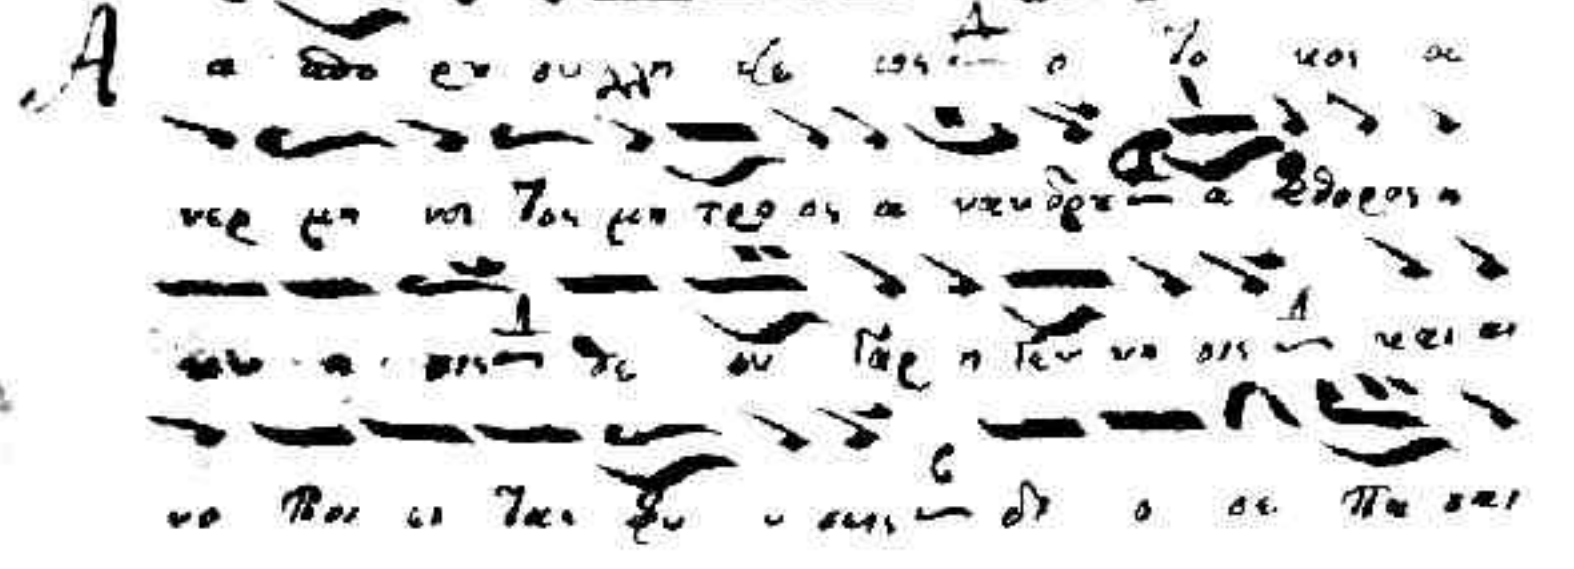 Α α σπο ρου συλ λη ψε ως ο το κος α
νερ μη νευ τος μη τρος α νανδρου α φθορος η
κυ η σις θε ου γαρ η γεν νη σις και αι
νο ποι ει τας φυ υ σεις δι ο σε πα σαι